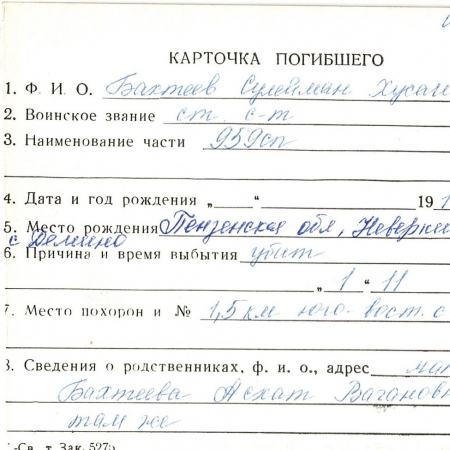 КАРТОЧКА ПОГИБШЕГО
1. Ф. И. О. Бахтеев Сулейман
2. Воинское звание ст. с-т
3. Наименование части 959сп
4. Дата и год рождения „ “ 19
5. Место рождения Пензенская обл, Неверки
с Демино
6. Причина и время выбытия убит
„ 1 “ 11
7. Место похорон и № 1,5 км юго-вост. с
8. Сведения о родственниках, ф. и. о., адрес
Бахтеева Асхат Вагановн
там же
-Св. т. Зак. 527